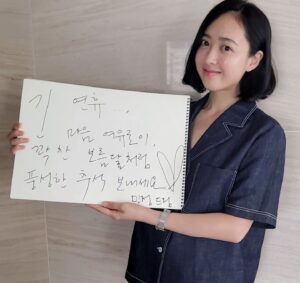 긴 연휴...,
마음 여유로이,
꽉 찬 보름달처럼
풍성한 추석 보내세요
민정드림